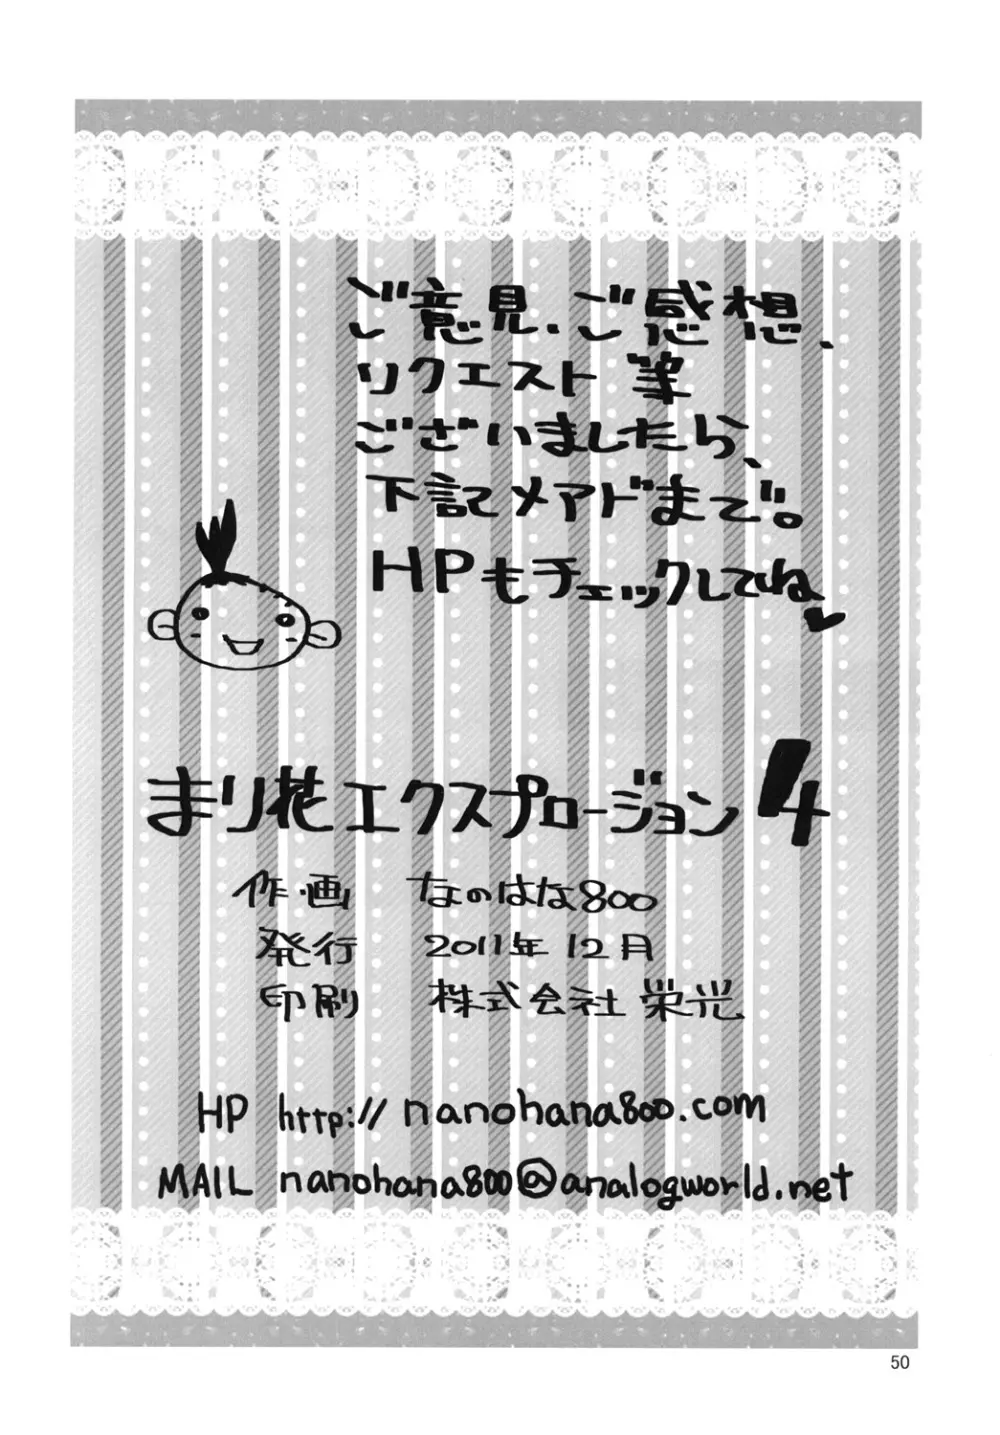 ご意見、ご感想、
リクエスト等
ございましたら、
下記メアドまで。
HPもチェックしてね♥
まり花エクスプロージョン4
作・画 なのはな800
発行 2011年12月
印刷 株式会社 栄光
HP http://nanohana800.com
MAIL nanohana800@analogworld.net
50